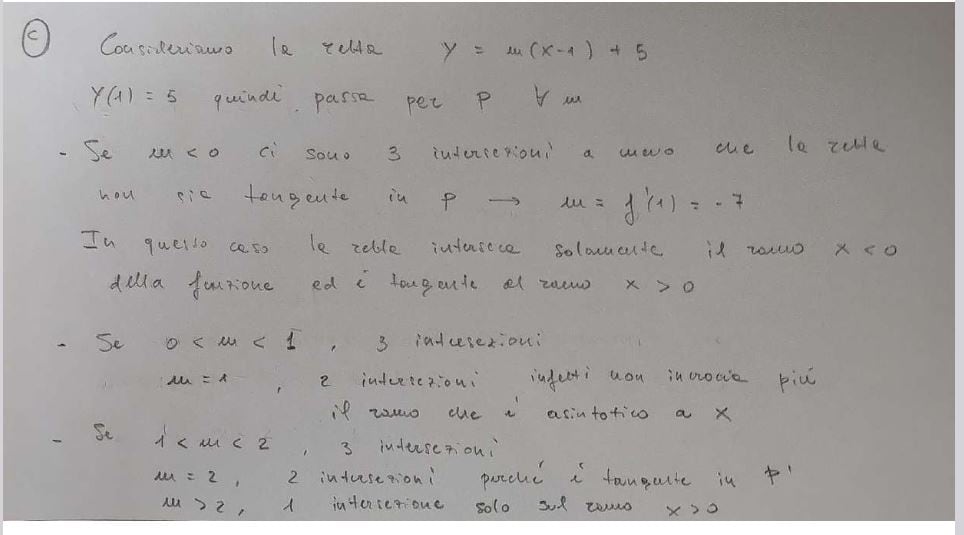 c Consideriamo la retta y = m(x-1) + 5
y(1) = 5 quindi passa per P ∀ m
- Se m < 0 ci sono 3 intersezioni a meno che la retta
non sia tangente in P → m = f'(1) = -7
In questo caso la retta interseca solamente il ramo x < 0
della funzione ed è tangente al ramo x > 0
- Se 0 < m < 1, 3 intersezioni
m = 1, 2 intersezioni infatti non incrocia più
il ramo che è asintotico a x
- Se 1 < m < 2, 3 intersezioni
m = 2, 2 intersezioni perché è tangente in P'
m > 2, 1 intersezione solo sul ramo x > 0